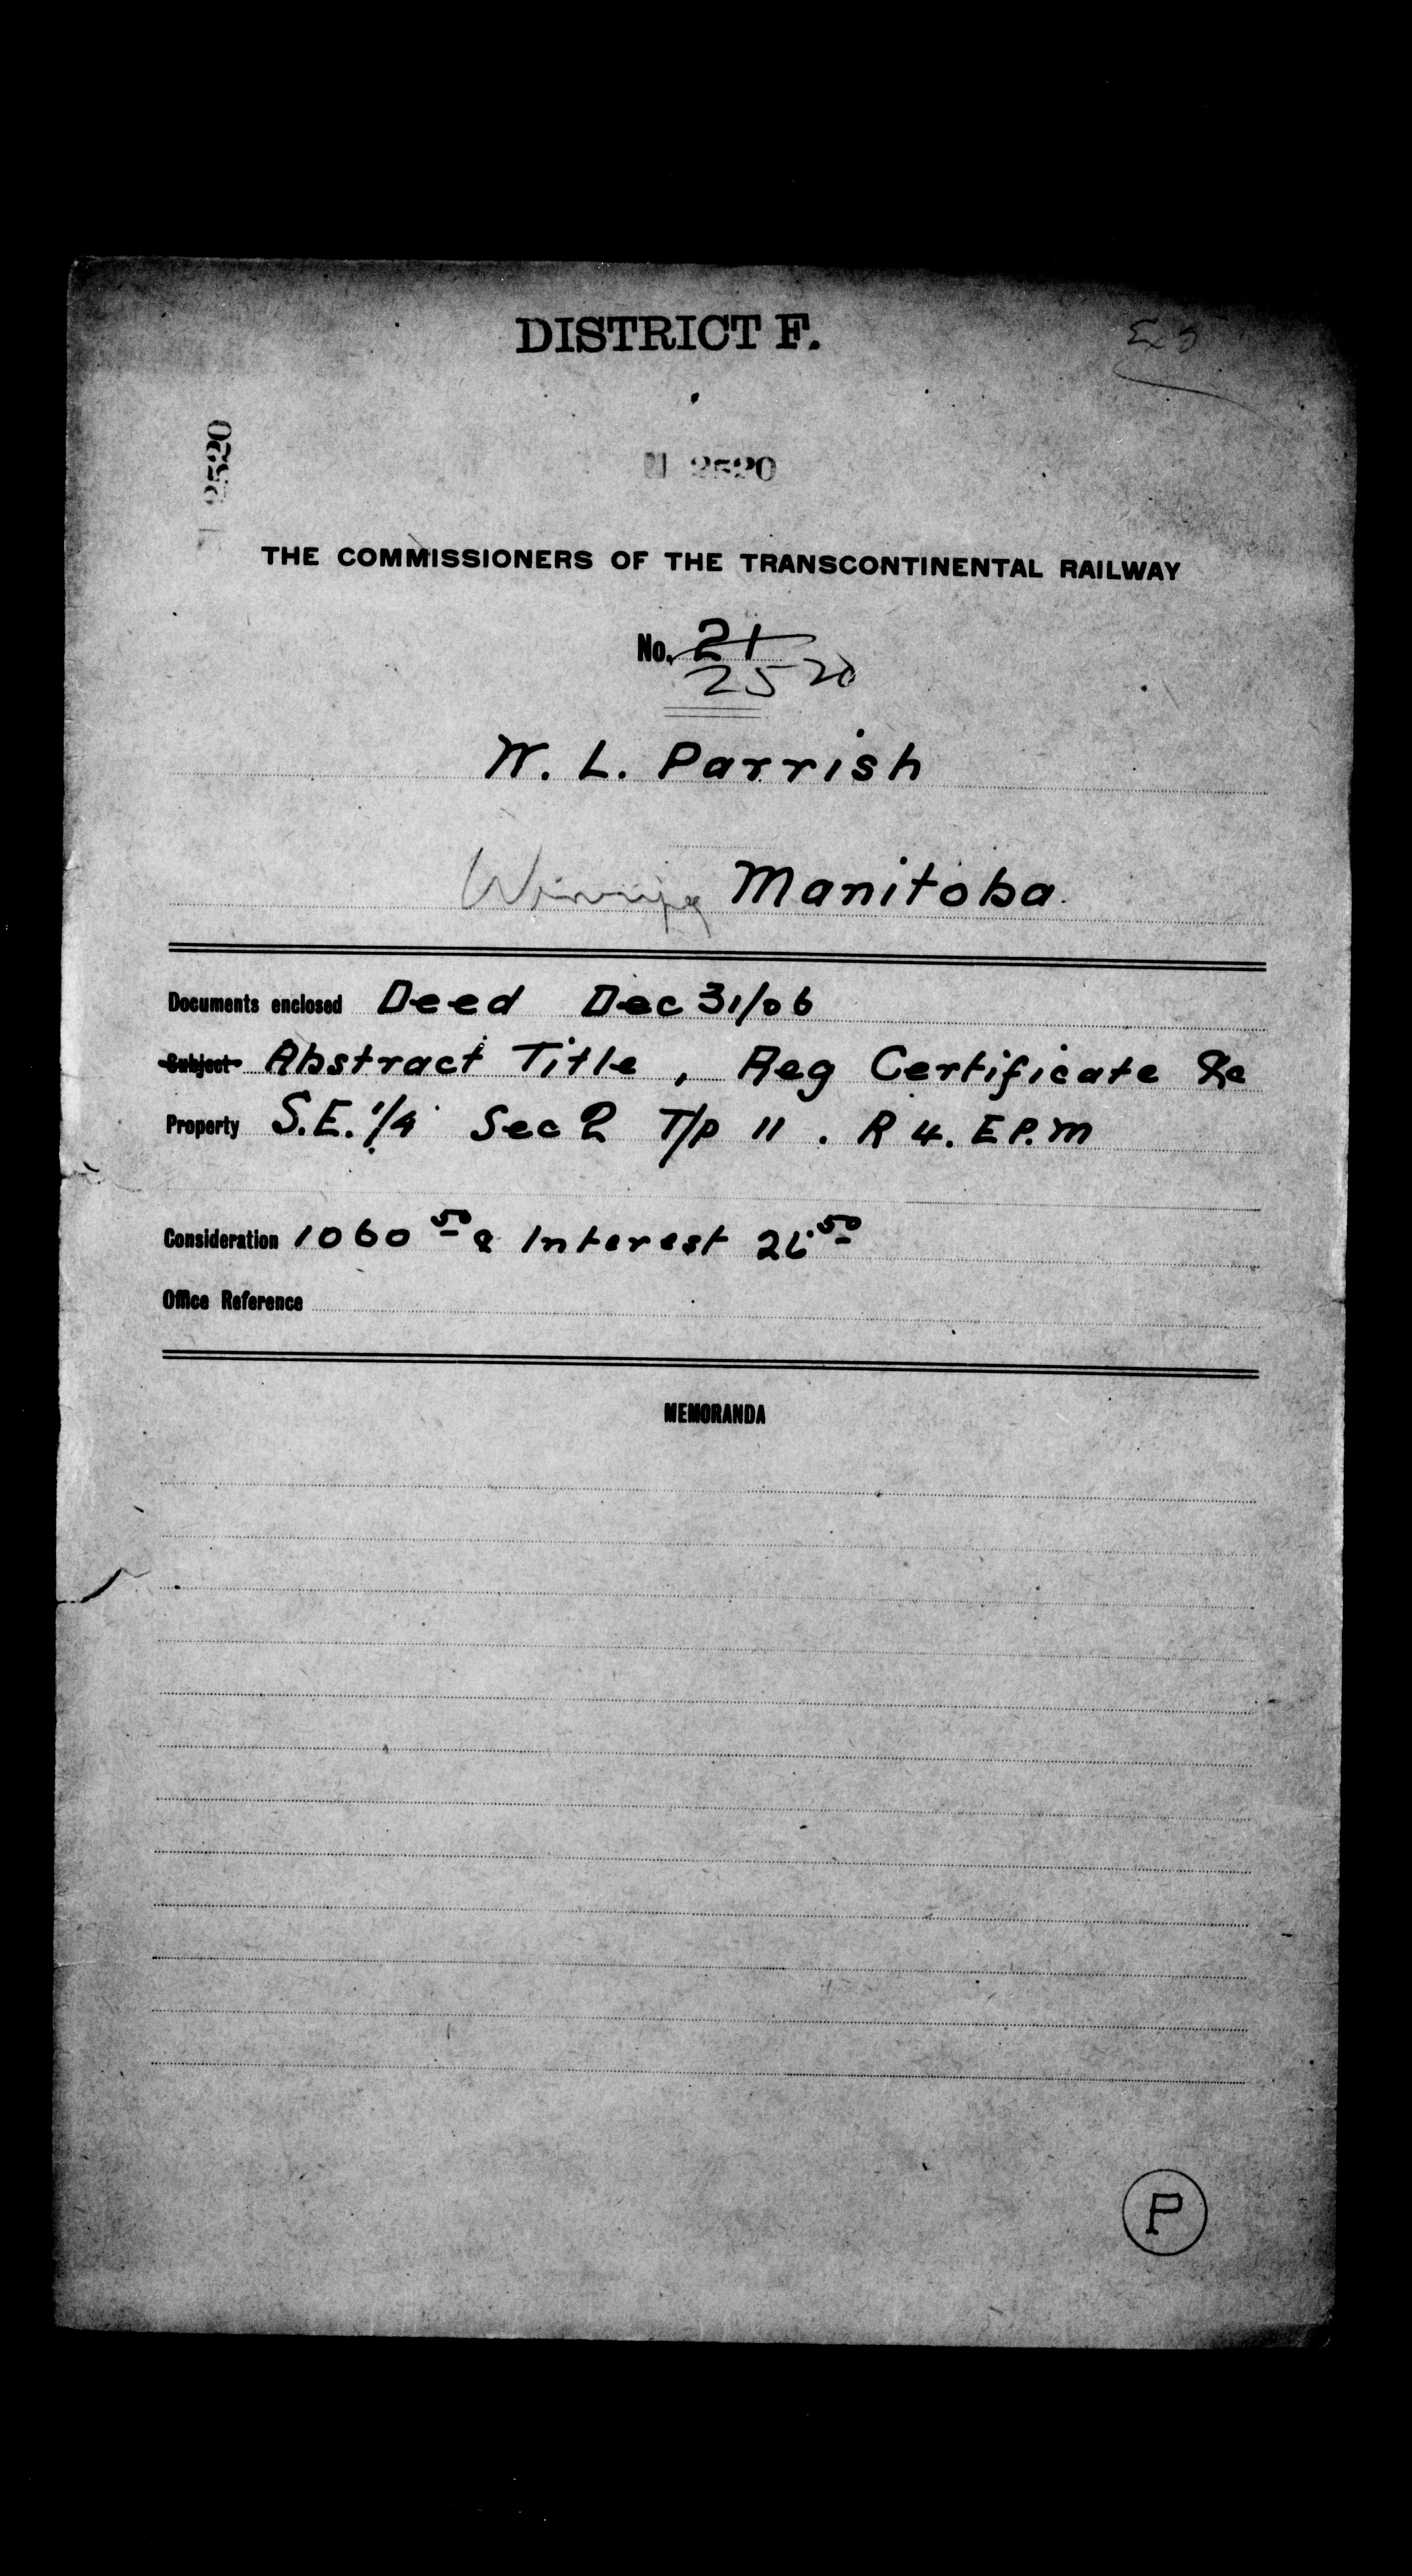 DISTRICT F.
2520
2520
THE COMMISSIONERS OF THE TRANSCONTINENTAL RAILWAY
No. 21
2520
W. L. Parrish
Winnipeg Manitoba.
Documents enclosed Deed Dec 31/06
Subject Abstract Title, Reg Certificate &c
Property S.E. 1/4 Sec 2 T/p 11. R 4. E P.M
Consideration 1060 50 & Interest 50
Office Reference
MEMORANDA
P